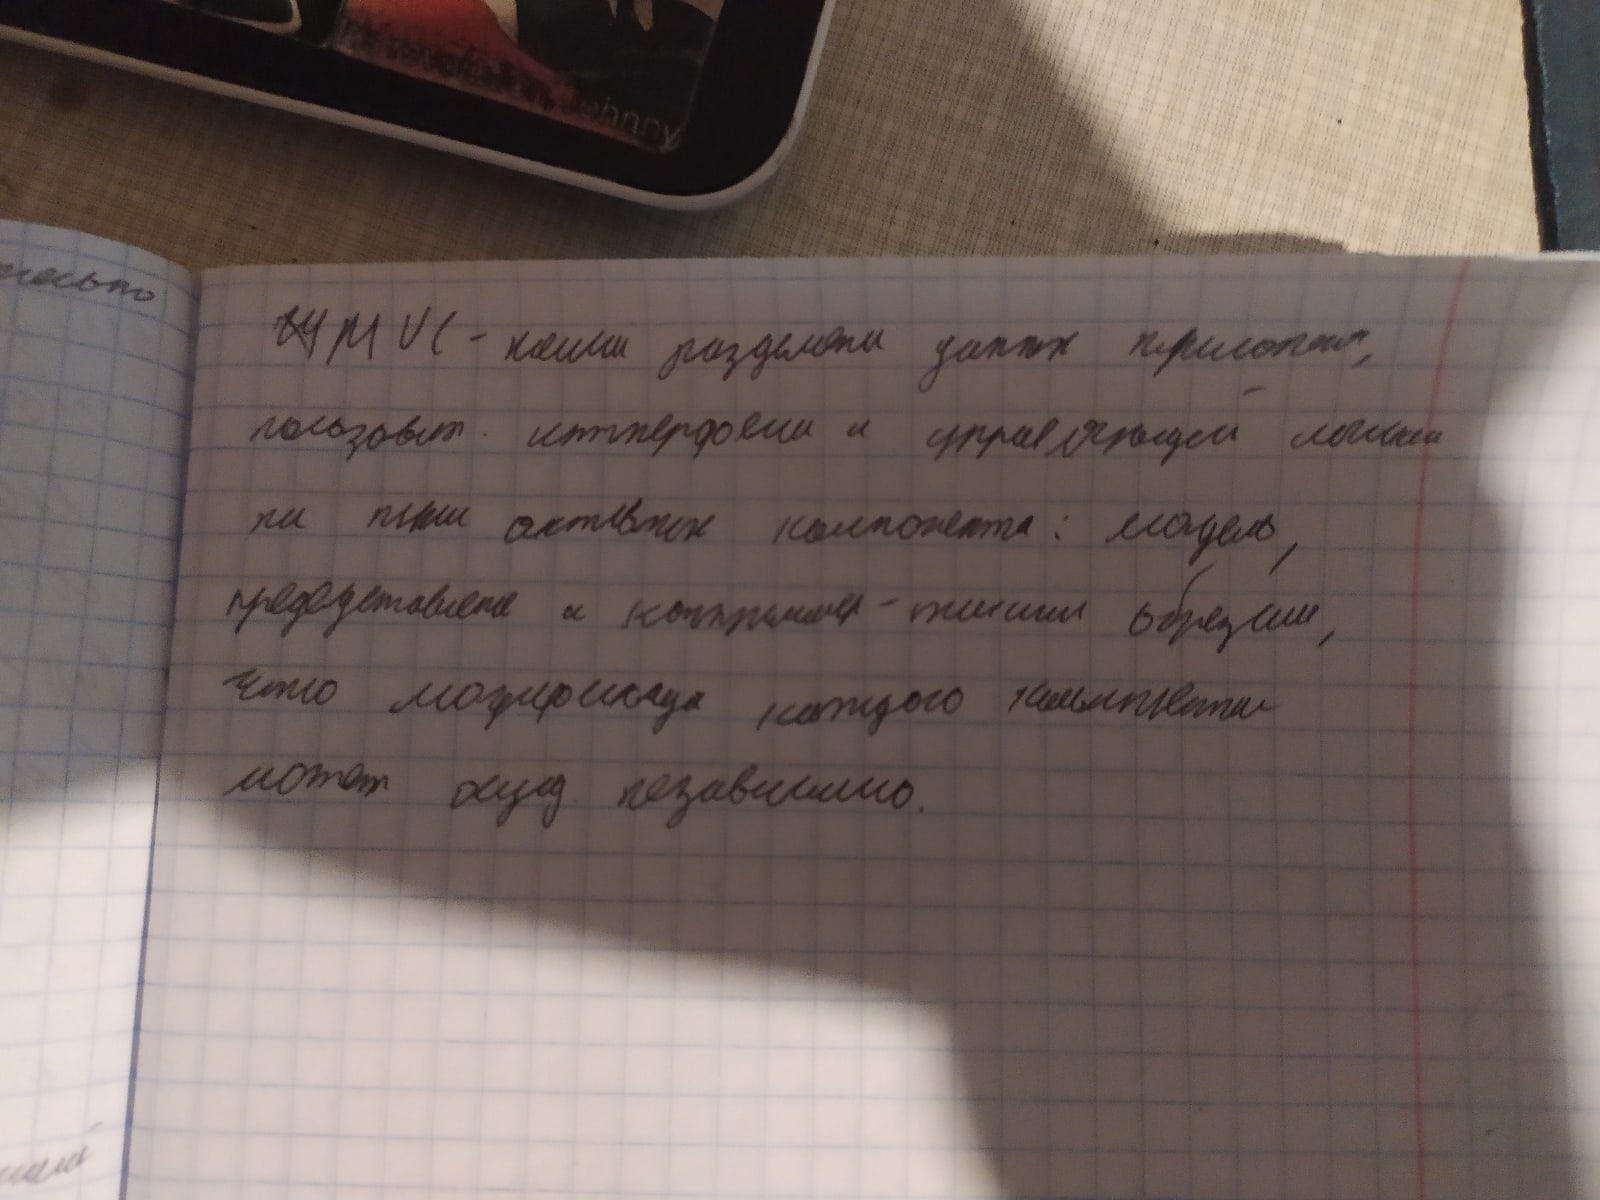 Johnny
тельно
MVC - схема разделения данных приложения,
пользоват. интерфейса и управляющей логики
на три отдельных компонента: модель,
представление и контроллер - таким образом,
что модификация каждого компонента
может осущ. независимо.